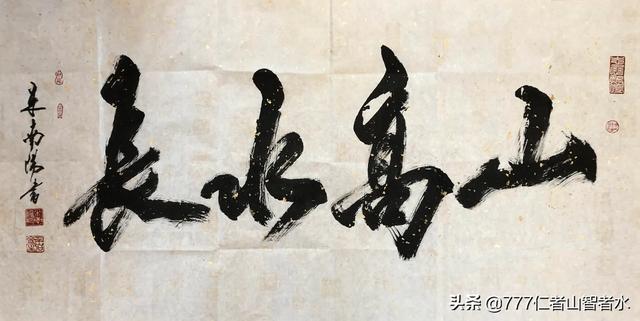 山高水长
朱南阳书
头条 @777仁者山智者水